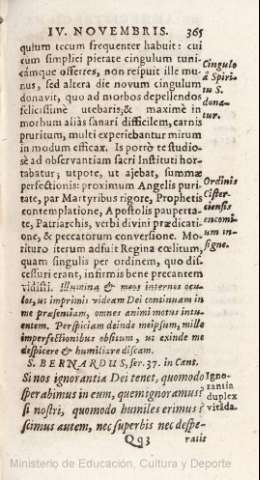 IV. NOVEMBRIS. 365
quium tecum frequenter habuit: cui
cum simplici pietate cingulum tuni-
camque offerres, non reipuit ille mu-
nus, sed altera die novum cingulum
donavit, quo ad morbos depellendos
felicissimè utebaris, & maximè in
morbum aliàs sanari difficilem, carnis
pruritum, multi experiebantur mirum
in modum efficax. Is porrò te studio-
sè ad observantiam sacri Instituti hor-
tabatur; utpote, ut ajebat, summæ
perfectionis: proximum Angelis puri-
tate, par Martyribus rigore, Prophetis
contemplatione, Apostolis pauperta-
te, Patriarchis, verbi divini prædicati-
one, & peccatorum conversione. Mo-
rituro iterum adfuit Regina cœlitum,
quam singulis per ordinem, quo dis-
cessuri erant, infirmis bene precantem
vidisti. Illumina & meos internos ocu-
los, ut imprimis videam Dei continuam in
me præsentiam, omnes animi motus intu-
entem. Perspiciam deinde meipsum, mille
imperfectionibus obsitum, ut exinde me
despicere & humiliare discam.
S. BERNARDUS, ser. 37. in Cant.
Si nos ignorantia Dei tenet, quomodo
sperabimus in eum, quem ignoramus?
si nostri, quomodo humiles erimus?
scimus autem, nec superbis nec despe-
Qq3 ratis
Cingulo
à Spiri-
tu S.
dona-
tur.
Ordinis
Cister-
ciensis
encomi-
um in-
signe.
Igno-
rantia
duplex
vitãda.
Ministerio de Educación, Cultura y Deporte